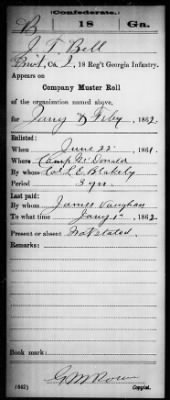 Confederate.
B 18 Ga.
J. T. Bell
Pvt, Co. I, 18 Reg't Georgia Infantry.
Appears on
Company Muster Roll
of the organization named above,
for Jany & Feby, 1862.
Enlisted:
When June 22, 1861.
Where Camp McDonald
By whom Col. E. Blakely
Period 3 yrs.
Last paid:
By whom James Vaughan
To what time Jany 1st 1862.
Present or absent Not stated
Remarks:
Book mark:
(642) Copyist.